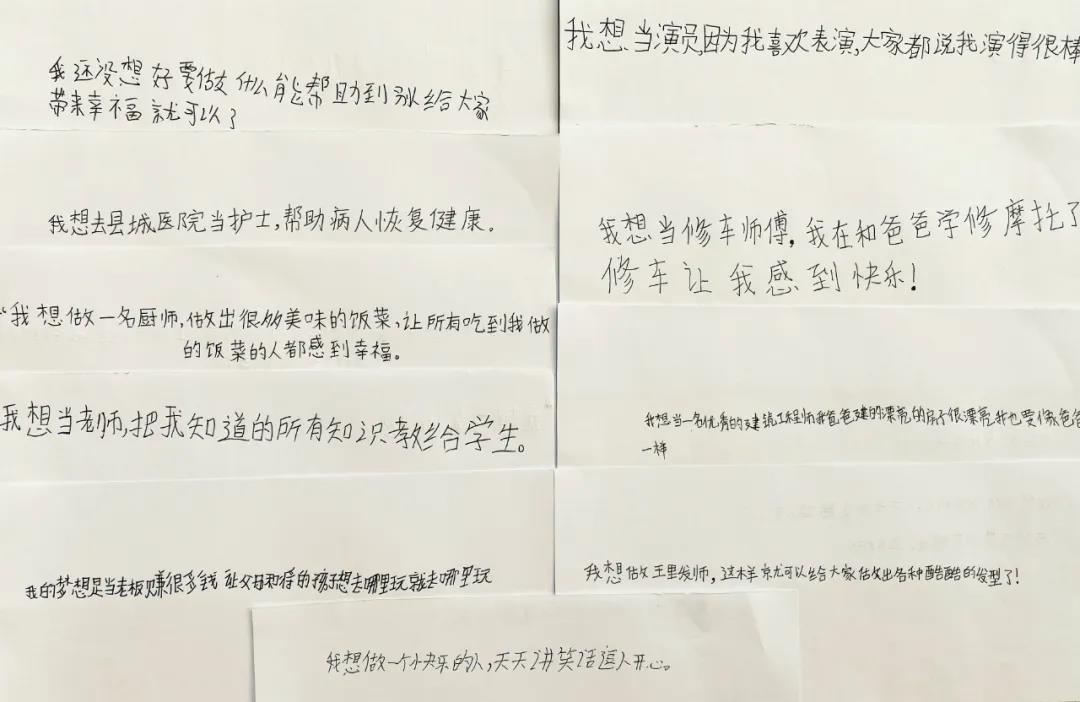 我还没想好要做什么能帮助到别给大家
带来幸福就可以了
我想去县城医院当护士,帮助病人恢复健康。
“我想做一名厨师,做出很多美味的饭菜,让所有吃到我做
的饭菜的人都感到幸福。
我想当老师,把我知道的所有知识教给学生。
我的梦想是当老板赚很多钱 让父母和得的孩子想去哪里玩就去哪里玩
我想当演员,因为我喜欢表演,大家都说我演得很棒
我想当修车师傅,我在和爸爸学修摩托了
修车让我感到快乐!
我想当一名优秀的建筑工程师我爸爸建的漂亮的房子很漂亮我也要像爸爸
一样
我想做理发师,这样就可以给大家做出各种酷酷的发型了!
我想做一个快乐的人,天天讲笑话逗人开心。